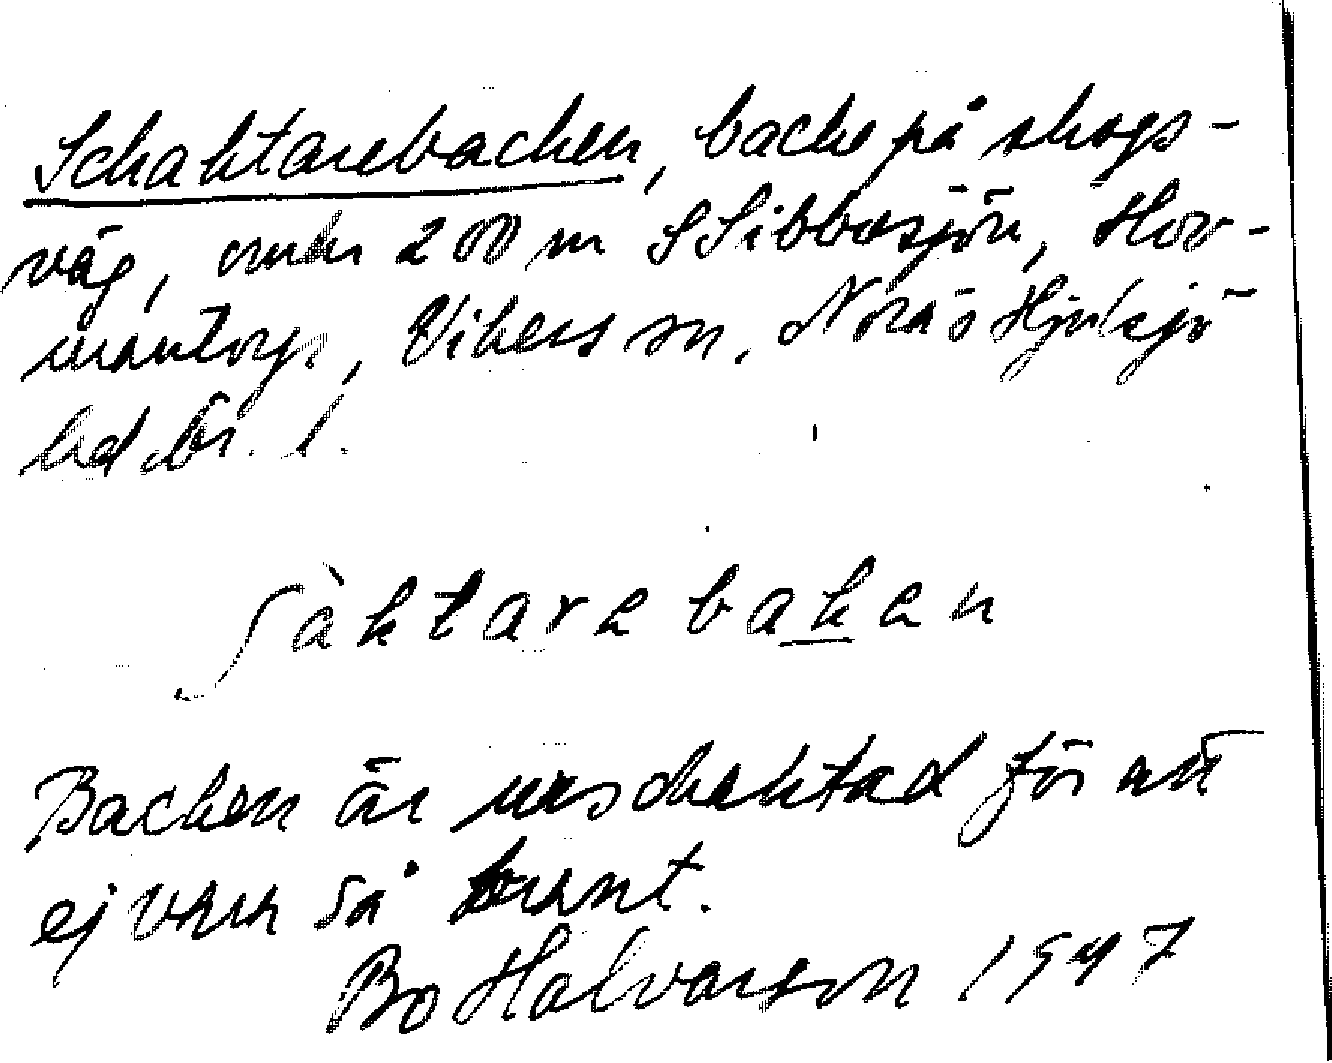 Schaktarebacken, backe på skogs-
väg, under 200 m S Sibbosjön, Hov-
mantorp, Vikers sn. Nora ö Hjulsjö
bd. Ör. l.
ʃàktarebakan
Backen är urschaktad för att
ej vara så brant.
Bo Halvarson 1947